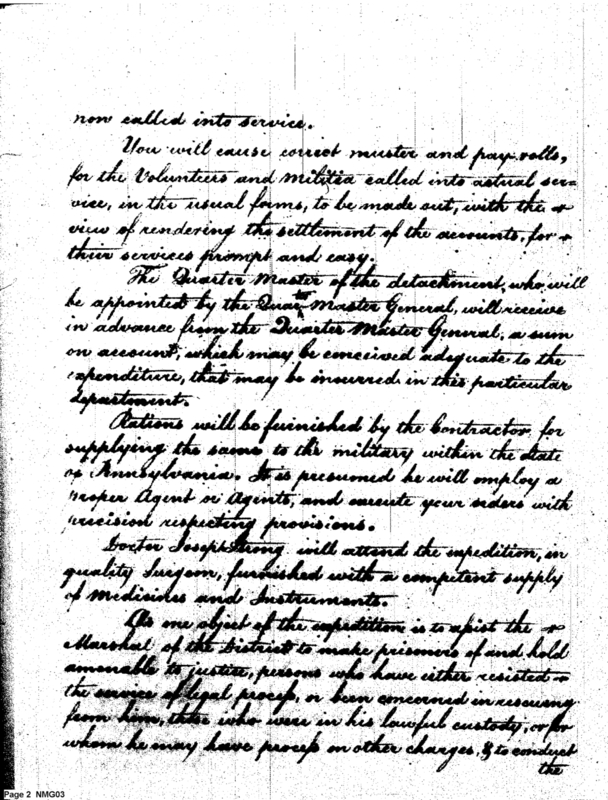 now called into service.
You will cause correct muster and pay-rolls,
for the Volunteers and Militia called into actual ser=
vice, in the usual forms, to be made out, with the
view of rendering the settlement of the accounts, for
their services prompt and easy.
The Quarter Master of the detachment, who will
be appointed by the Quarr Master General, will receive
in advance from the Quarter Master General, a sum
on account, which may be conceived adequate to the
expenditure, that may be incurred in this particular
Department.
Rations will be furnished by the Contractor for
supplying the same to the military within the State
of Pennsylvania. It is presumed he will employ a
proper Agent or Agents, and execute your orders with
precision respecting provisions.
Doctor Joseph Strong will attend the expedition, in
quality Surgeon, furnished with a competent supply
of Medicines and Instruments.
As one object of the expedition is to assist the
Marshal of the District to make prisoners of and hold
amenable to justice, persons who have either resisted
the service of legal process, or been concerned in rescuing
from him, those who were in his lawful custody, or for
whom he may have process on other charges, & to conduct
the
Page 2 NMG03